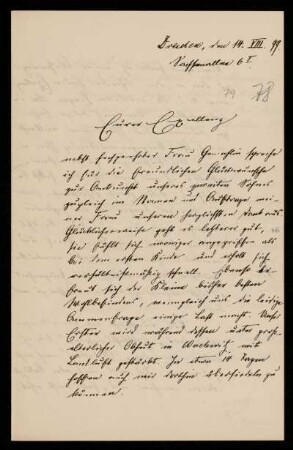 Dresden, den 14. VIII. 99
Sachsenallee 6 I.
79 78
Eurer Excellenz
nebst hochverehrter Frau Gemahlin spreche
ich für die freundlichen Glückwünsche
zur Ankunft unseres zweiten Sohnes
zugleich im Namen und Auftrage mei-
ner Frau unseren herzlichsten Dank aus.
Glücklicherweise geht es letzterer gut,
sie fühlt sich weniger angegriffen als
bei dem ersten Kinde und erholt sich
verhältnismäßig schnell. Ebenso er-
freut sich der Kleine bisher besten
Wohlbefindens, wenngleich uns die leidige
Ammenfrage einige Last macht. Unser
Erster wird während dessen unter groß-
elterlicher Obhut in Wachwitz mit
Landluft gestärkt. In etwa 14 Tagen
hoffen auch wir dorthin übersiedeln zu
können.